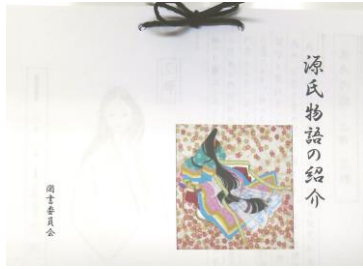 源氏物語の紹介
図書委員会